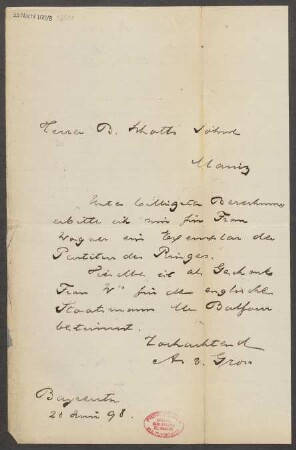 Herrn B. Schotts Söhne
Mainz
Unter billigster Berechnung
erbitte ich mir für Frau
Wagner ein Exemplar der
Partitur des Ringes.
Dieselbe ist als Geschenk
Frau W's für den englischen
Staatsmann Mr Balfour
bestimmt.
Hochachtend
A. v. Gross
Bayreuth
98.